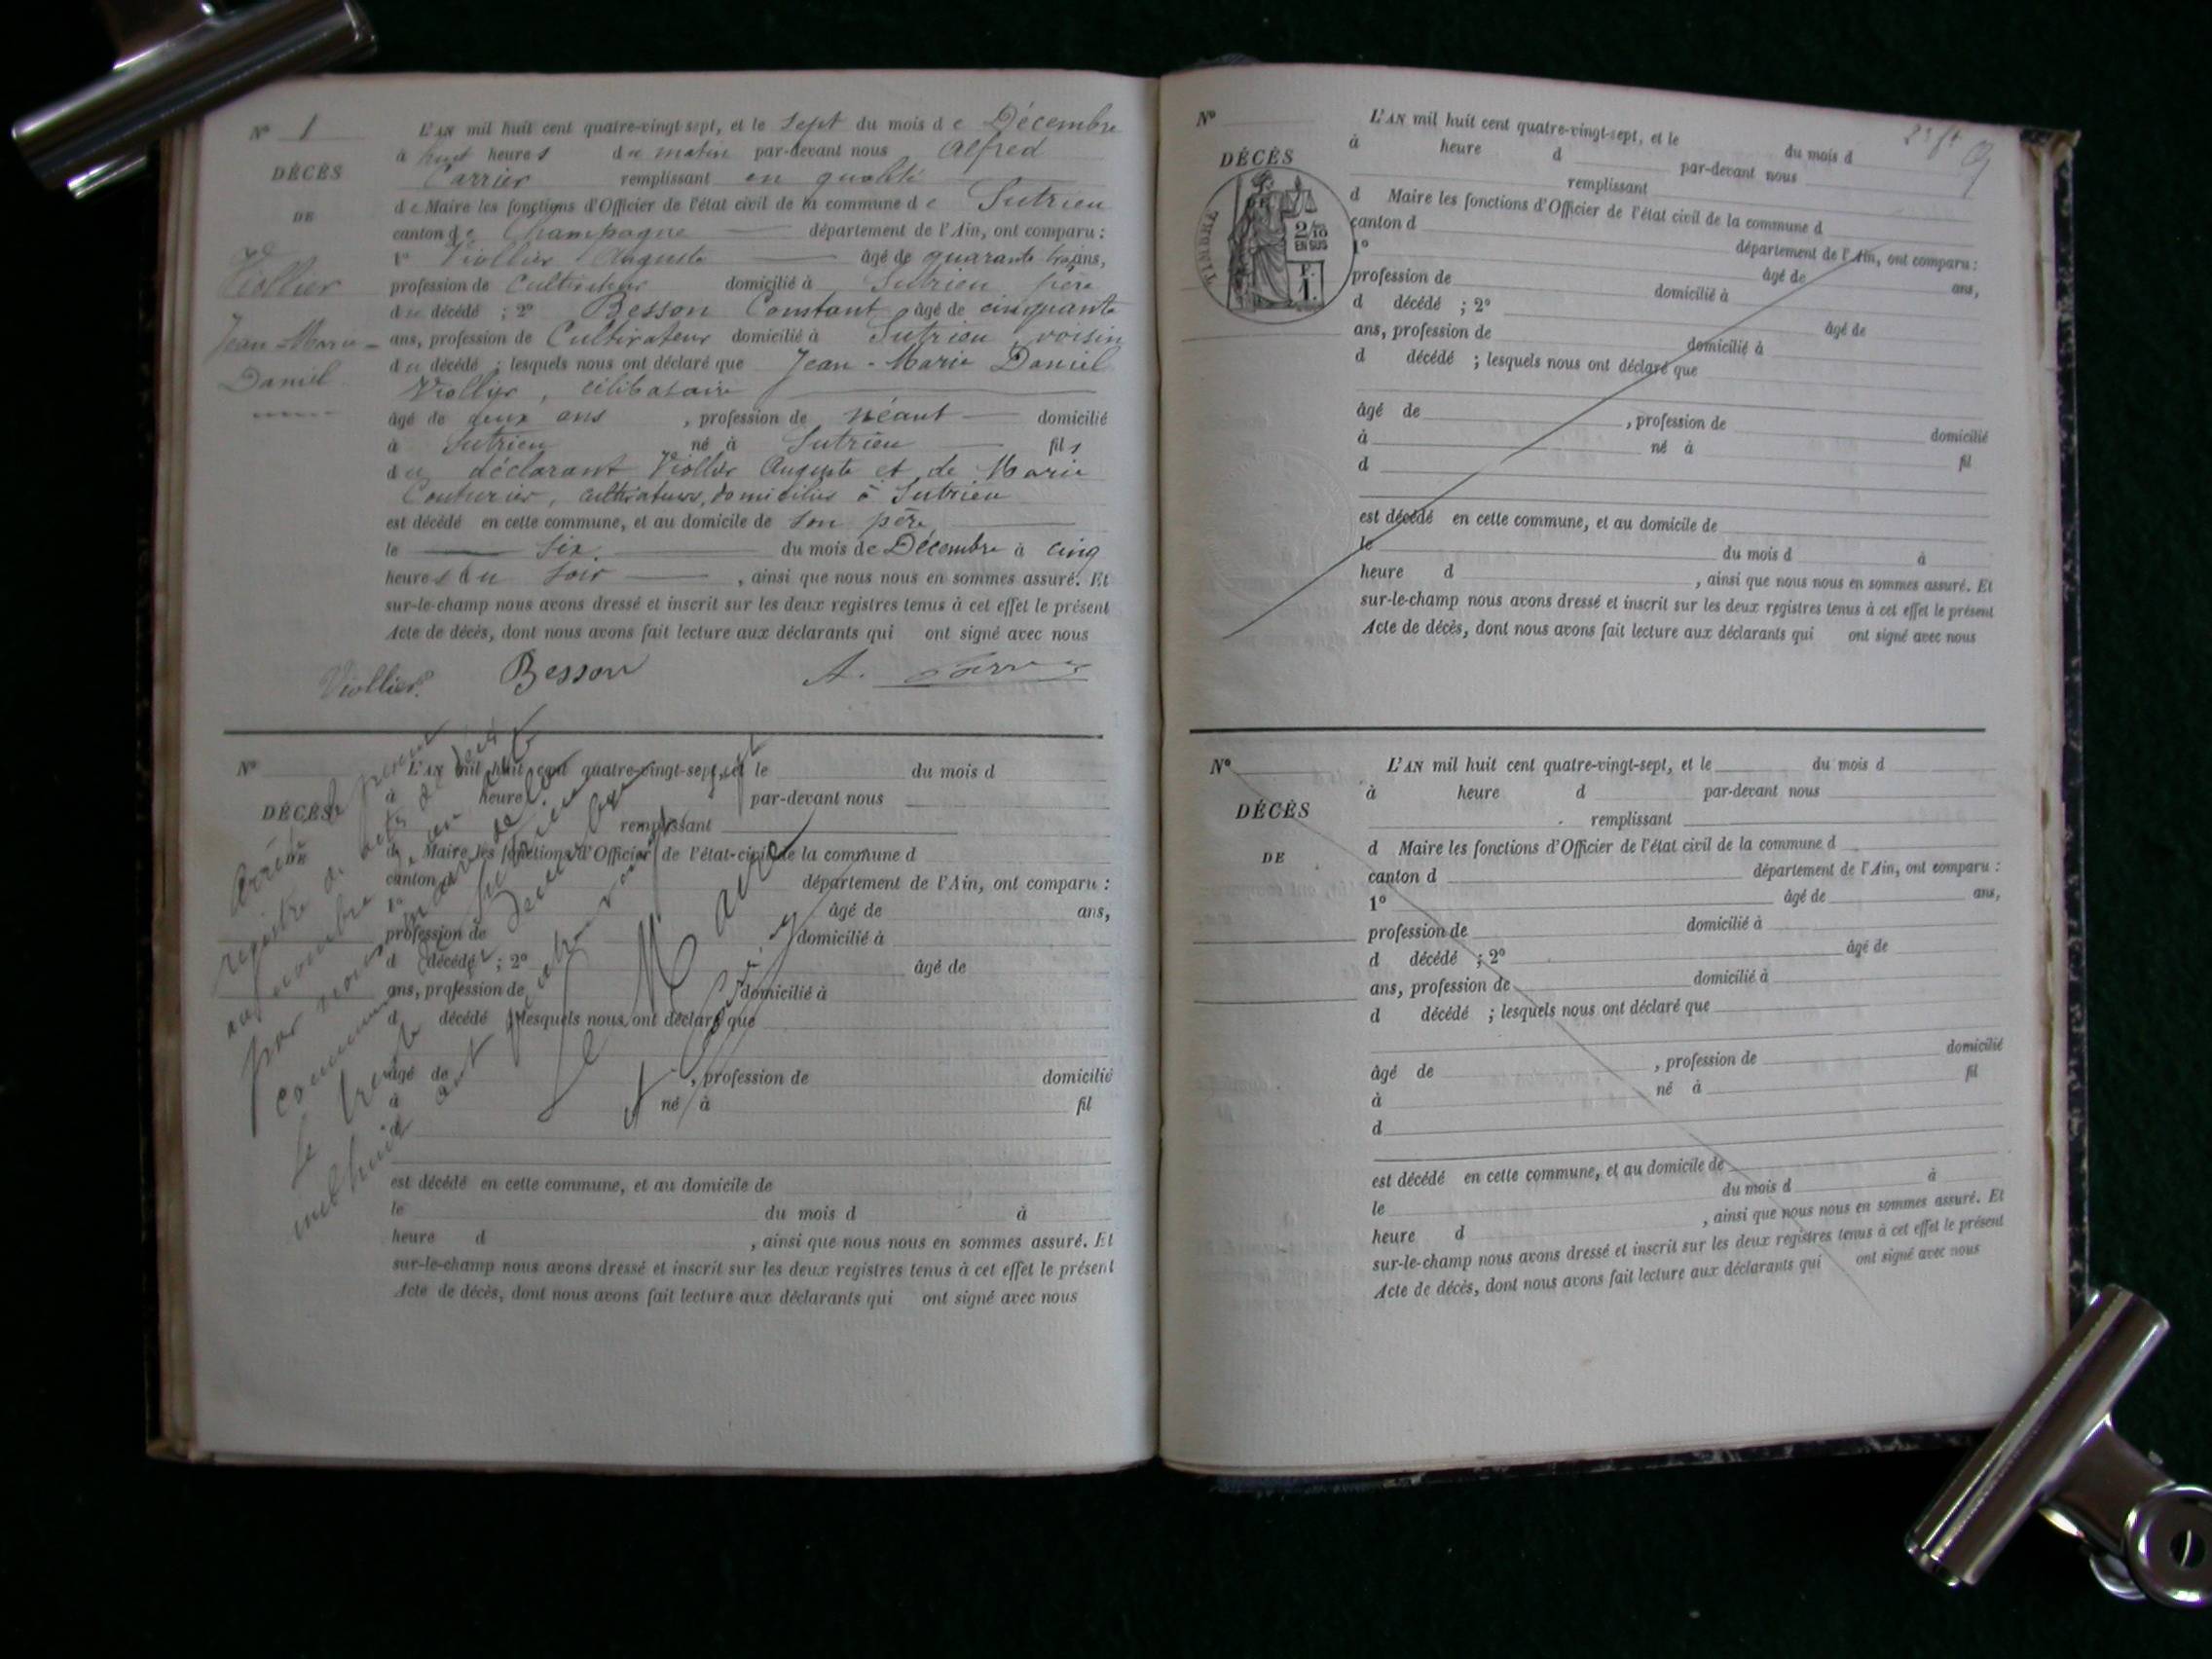 N° 1
DÉCÈS
DE
Viollier
Jean-Marie-
Daniel
L'AN mil huit cent quatre-vingt-sept, et le sept du mois de Décembre
à huit heures du matin par-devant nous Alfred
Carrier remplissant en qualité
de Maire les fonctions d'Officier de l'état civil de la commune de Sutrieu
canton de Champagne département de l'Ain, ont comparu :
1° Viollier Auguste âgé de quarante trois ans,
profession de Cultivateur domicilié à Sutrieu père
du décédé ; 2° Besson Constant âgé de cinquante
ans, profession de Cultivateur domicilié à Sutrieu, voisin
du décédé ; lesquels nous ont déclaré que Jean-Marie Daniel
Viollier, célibataire
âgé de deux ans , profession de néant domicilié
à Sutrieu né à Sutrieu fils
du déclarant Viollier Auguste et de Marie
Couturier, cultivateurs, domiciliés à Sutrieu
est décédé en cette commune, et au domicile de son père
le six du mois de Décembre à cinq
heures du soir , ainsi que nous nous en sommes assuré. Et
sur-le-champ nous avons dressé et inscrit sur les deux registres tenus à cet effet le présent
Acte de décès, dont nous avons fait lecture aux déclarants qui ont signé avec nous
Viollier Besson A. Carrier
N°
DÉCÈS
DE
L'AN mil huit cent quatre-vingt-sept, et le du mois d
à heure par-devant nous
remplissant
d Maire les fonctions d'Officier de l'état-civil de la commune d
canton d département de l'Ain, ont comparu :
1° âgé de ans,
profession de domicilié à
d décédé ; 2° âgé de
ans, profession de domicilié à
d décédé ; lesquels nous ont déclaré que
âgé de , profession de domicilié
à né à fil
d
est décédé en cette commune, et au domicile de
le du mois d à
heure d , ainsi que nous nous en sommes assuré. Et
sur-le-champ nous avons dressé et inscrit sur les deux registres tenus à cet effet le présent
Acte de décès, dont nous avons fait lecture aux déclarants qui ont signé avec nous
Arrêté le présent
registre de décès
au nombre de
par nous maire de la
commune de Sutrieu
le trente un Décembre
mil huit cent quatre vingt sept
Le Maire
A. Carrier
N°
DÉCÈS
TIMBRE
2/10
EN SUS
F.
1.
L'AN mil huit cent quatre-vingt-sept, et le du mois d
à heure d par-devant nous
remplissant
d Maire les fonctions d'Officier de l'état civil de la commune d
canton d département de l'Ain, ont comparu :
1° âgé de ans,
profession de domicilié à
d décédé ; 2° âgé de
ans, profession de domicilié à
d décédé ; lesquels nous ont déclaré que
âgé de , profession de domicilié
à né à fil
d
est décédé en cette commune, et au domicile de
le du mois d à
heure d , ainsi que nous nous en sommes assuré. Et
sur-le-champ nous avons dressé et inscrit sur les deux registres tenus à cet effet le présent
Acte de décès, dont nous avons fait lecture aux déclarants qui ont signé avec nous
N°
DÉCÈS
DE
L'AN mil huit cent quatre-vingt-sept, et le du mois d
à heure d par-devant nous
remplissant
d Maire les fonctions d'Officier de l'état civil de la commune d
canton d département de l'Ain, ont comparu :
1° âgé de ans,
profession de domicilié à
d décédé ; 2° âgé de
ans, profession de domicilié à
d décédé ; lesquels nous ont déclaré que
âgé de , profession de domicilié
à né à fil
d
est décédé en cette commune, et au domicile de
le du mois d à
heure d , ainsi que nous nous en sommes assuré. Et
sur-le-champ nous avons dressé et inscrit sur les deux registres tenus à cet effet le présent
Acte de décès, dont nous avons fait lecture aux déclarants qui ont signé avec nous